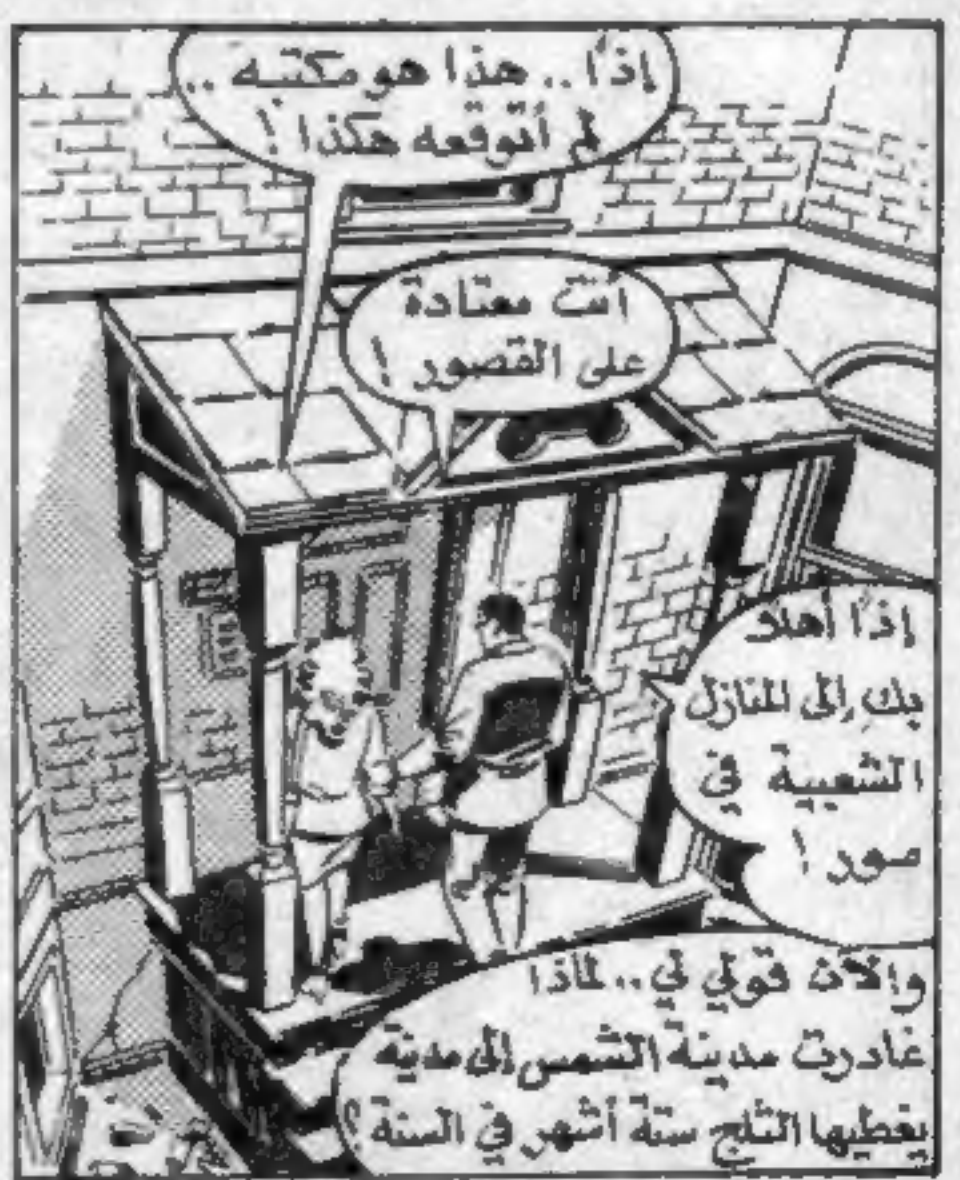 إذًا.. هذا هو مكتبه..
لم أتوقعه هكذا!
أنت معتادة
على القصور!
إذًا أهلاً
بكِ إلى المنازل
الشعبية في
صور!
والآن قولي لي.. لماذا
غادرت مدينة الشمس إلى مدينة
يغطيها الثلج ستة أشهر في السنة؟